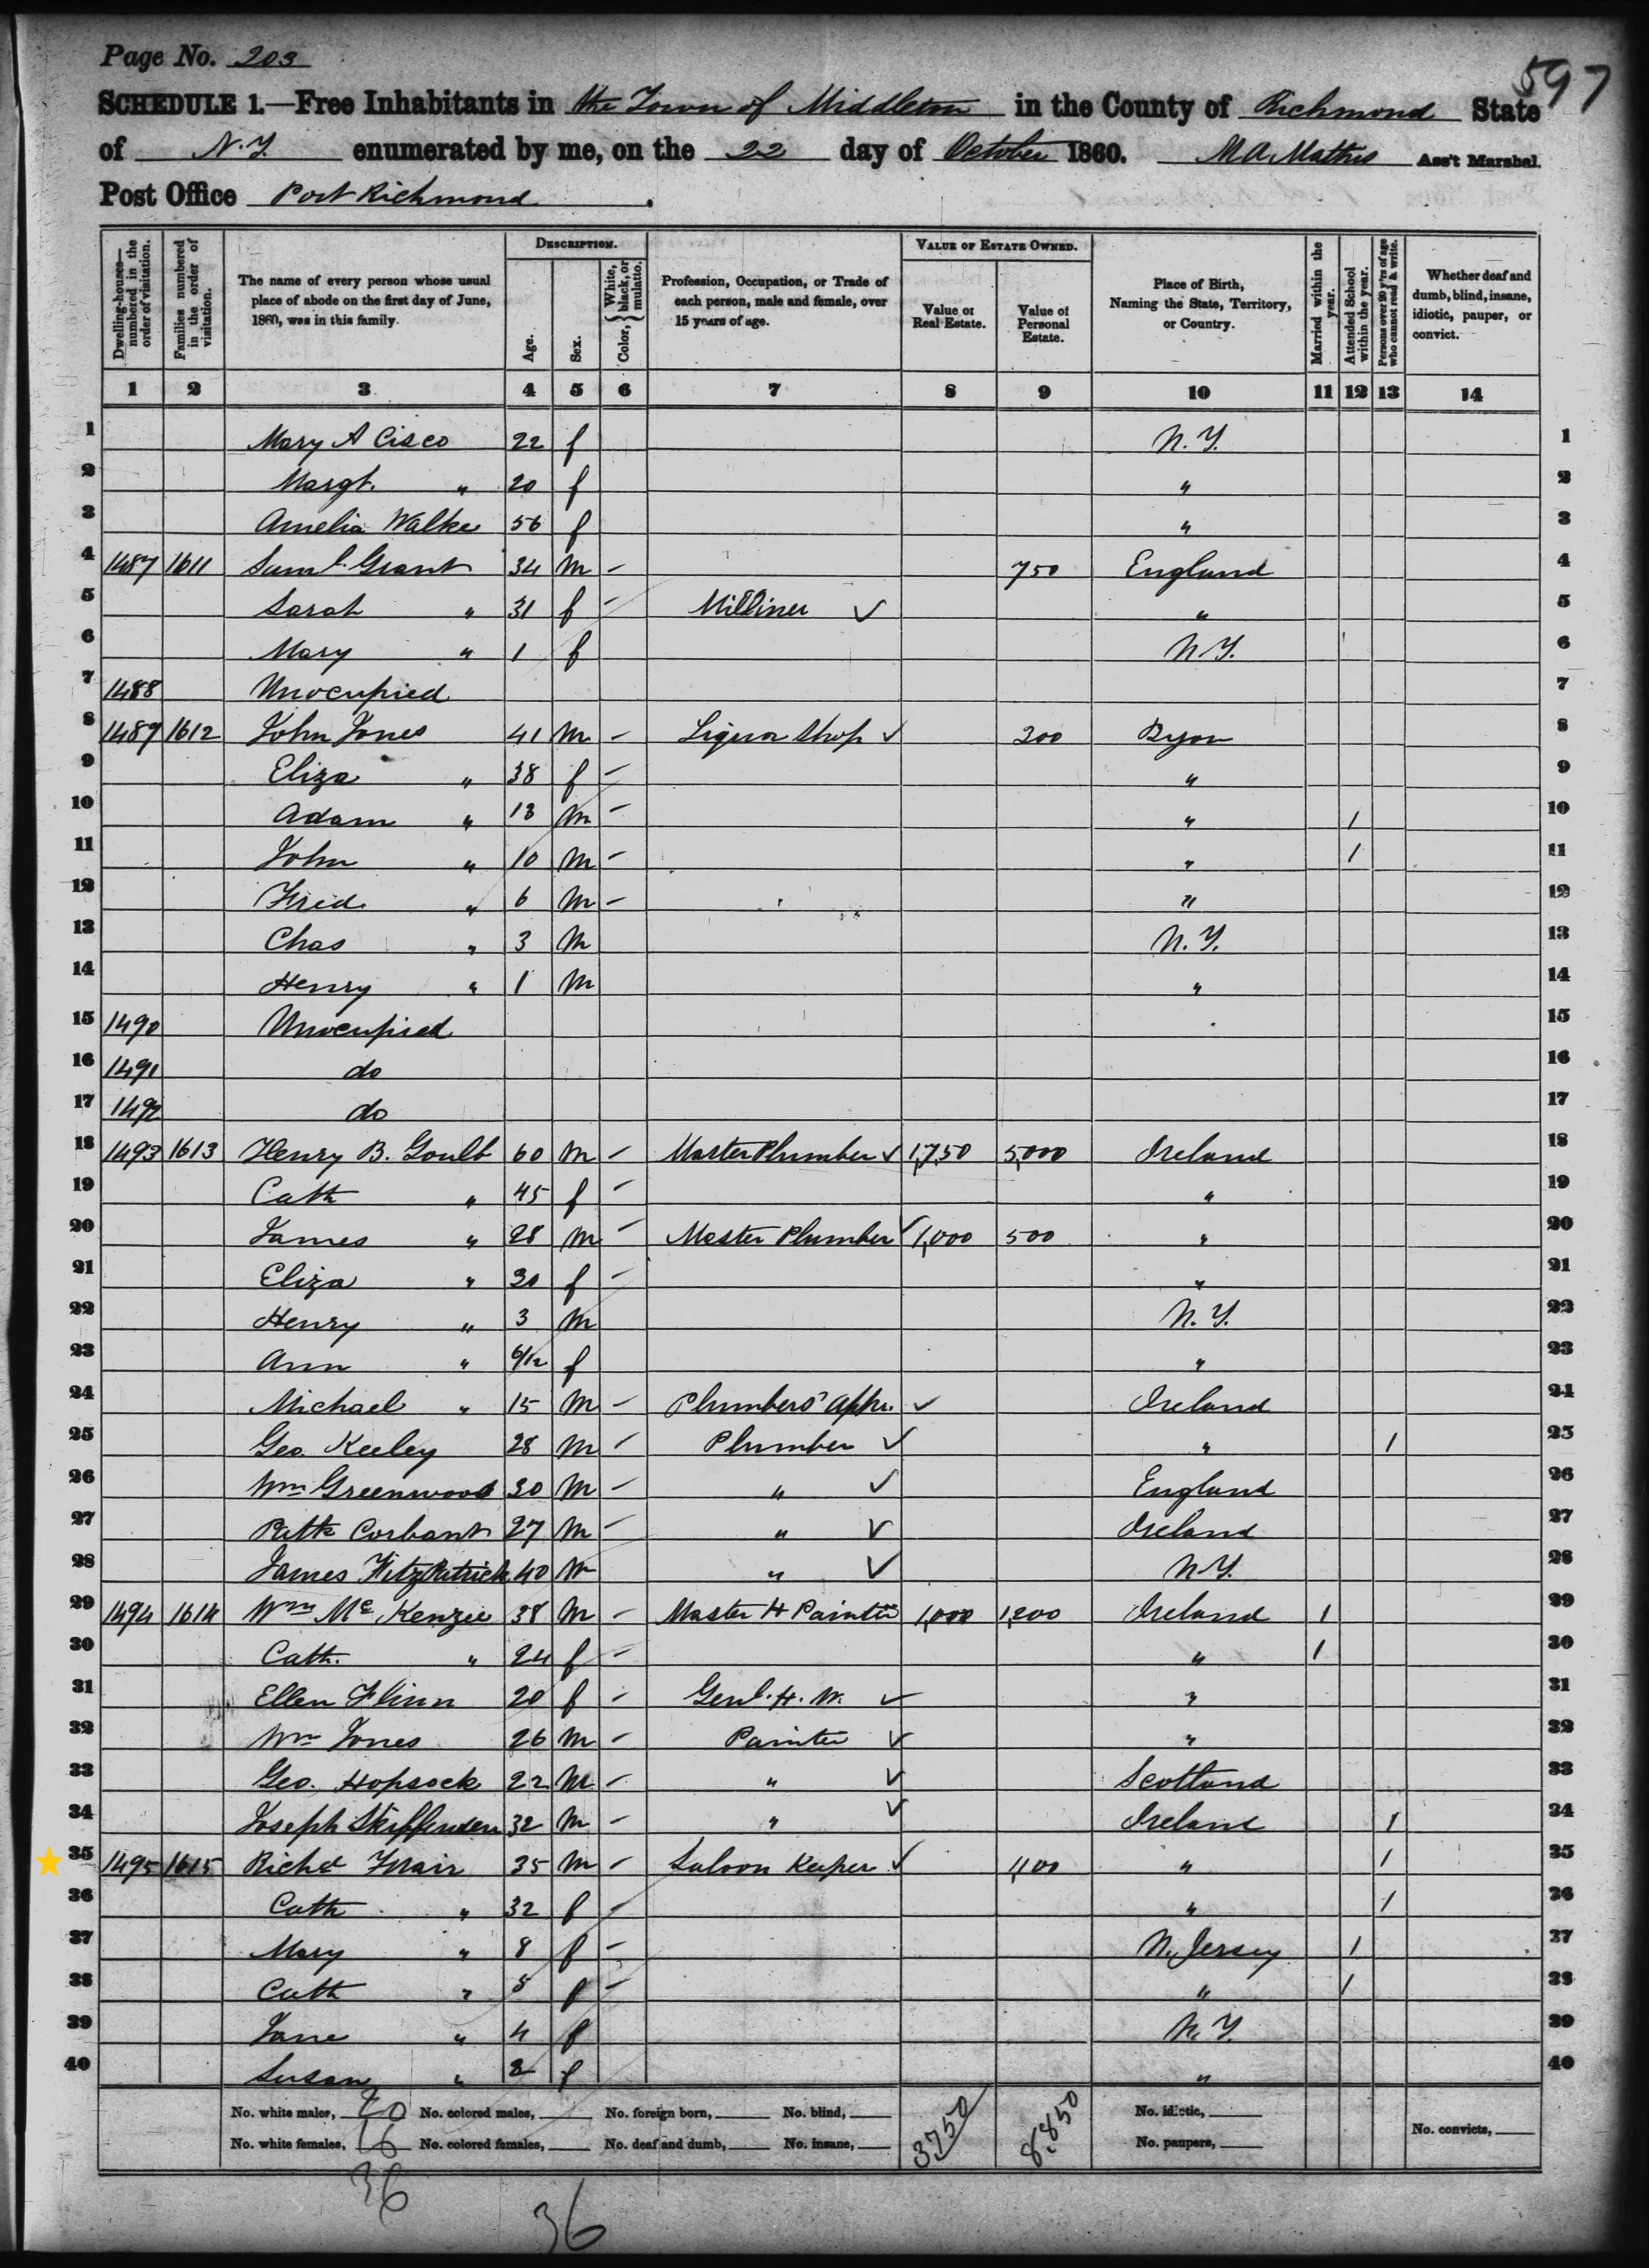 Page No. 203
597
SCHEDULE 1.—Free Inhabitants in the Town of Middleton in the County of Richmond State
of N.Y. enumerated by me, on the 22 day of October 1860. M A Mathis Ass't Marshal.
Post Office Port Richmond.
Dwelling-houses—numbered in the order of visitation.
Families numbered in the order of visitation.
The name of every person whose usual place of abode on the first day of June, 1860, was in this family.
DESCRIPTION.
Age.
Sex.
Color, { White, black, or mulatto.
Profession, Occupation, or Trade of each person, male and female, over 15 years of age.
VALUE OF ESTATE OWNED.
Value of Real Estate.
Value of Personal Estate.
Place of Birth, Naming the State, Territory, or Country.
Married within the year.
Attended School within the year.
Persons over 20 y'rs of age who cannot read & write.
Whether deaf and dumb, blind, insane, idiotic, pauper, or convict.
1 2 3 4 5 6 7 8 9 10 11 12 13 14
1 Mary A Cisco 22 f N.Y. 1
2 Margt. " 20 f " 2
3 Amelia Walke 56 f " 3
4 1487 1611 Saml. Grant 34 m - 750 England 4
5 Sarah " 31 f - Milliner ✓ " 5
6 Mary " 1 f N.Y. 6
7 1488 Unocupied 7
8 1489 1612 John Jones 41 m - Liquor Shop ✓ 300 8
9 Eliza " 38 f - " 9
10 Adam " 13 m - " 1 10
11 John " 10 m - " 1 11
12 Fred. " 6 m - " 12
13 Chas " 3 m N.Y. 13
14 Henry " 1 m " 14
15 1490 Unocupied 15
16 1491 do 16
17 1492 do 17
18 1493 1613 Henry B. Goult 60 m - Master Plumber ✓ 1,750 5,000 Ireland 18
19 Cath " 45 f - " 19
20 James " 28 m - Master Plumber ✓ 1,000 500 " 20
21 Eliza " 30 f - " 21
22 Henry " 3 m N.Y. 22
23 Ann " 6/12 f " 23
24 Michael " 15 m - Plumbers' Appr. ✓ Ireland 24
25 Geo. Keeley 28 m - Plumber ✓ " 1 25
26 Wm Greenwood 30 m - " ✓ England 26
27 Patk Corbant 27 m - " ✓ Ireland 27
28 James FitzPatrick 40 m " ✓ N.Y. 28
29 1494 1614 Wm Mc Kenzie 38 m - Master H Painter 1,000 1,200 Ireland 1 29
30 Cath. " 24 f - " 1 30
31 Ellen Flinn 20 f - Genl. H. W. ✓ " 31
32 Wm Jones 26 m - Painter ✓ " 32
33 Geo. Hopsock 22 m - " ✓ Scotland 33
34 Joseph 32 m - " ✓ Ireland 1 34
35 1495 1615 Richd Frair 35 m - Saloon Keeper ✓ 1,100 " 1 35
36 Cath " 32 f - " 1 36
37 Mary " 8 f - N. Jersey 1 37
38 Cath " 5 f - " 1 38
39 Jane " 4 f N.Y. 39
40 Susan " 2 f " 40
No. white males, 20 No. colored males, No. foreign born, No. blind, 3750 8,850 No. idiotic,
No. white females, 16 No. colored females, No. deaf and dumb, No. insane, No. paupers, No. convicts,
36
36